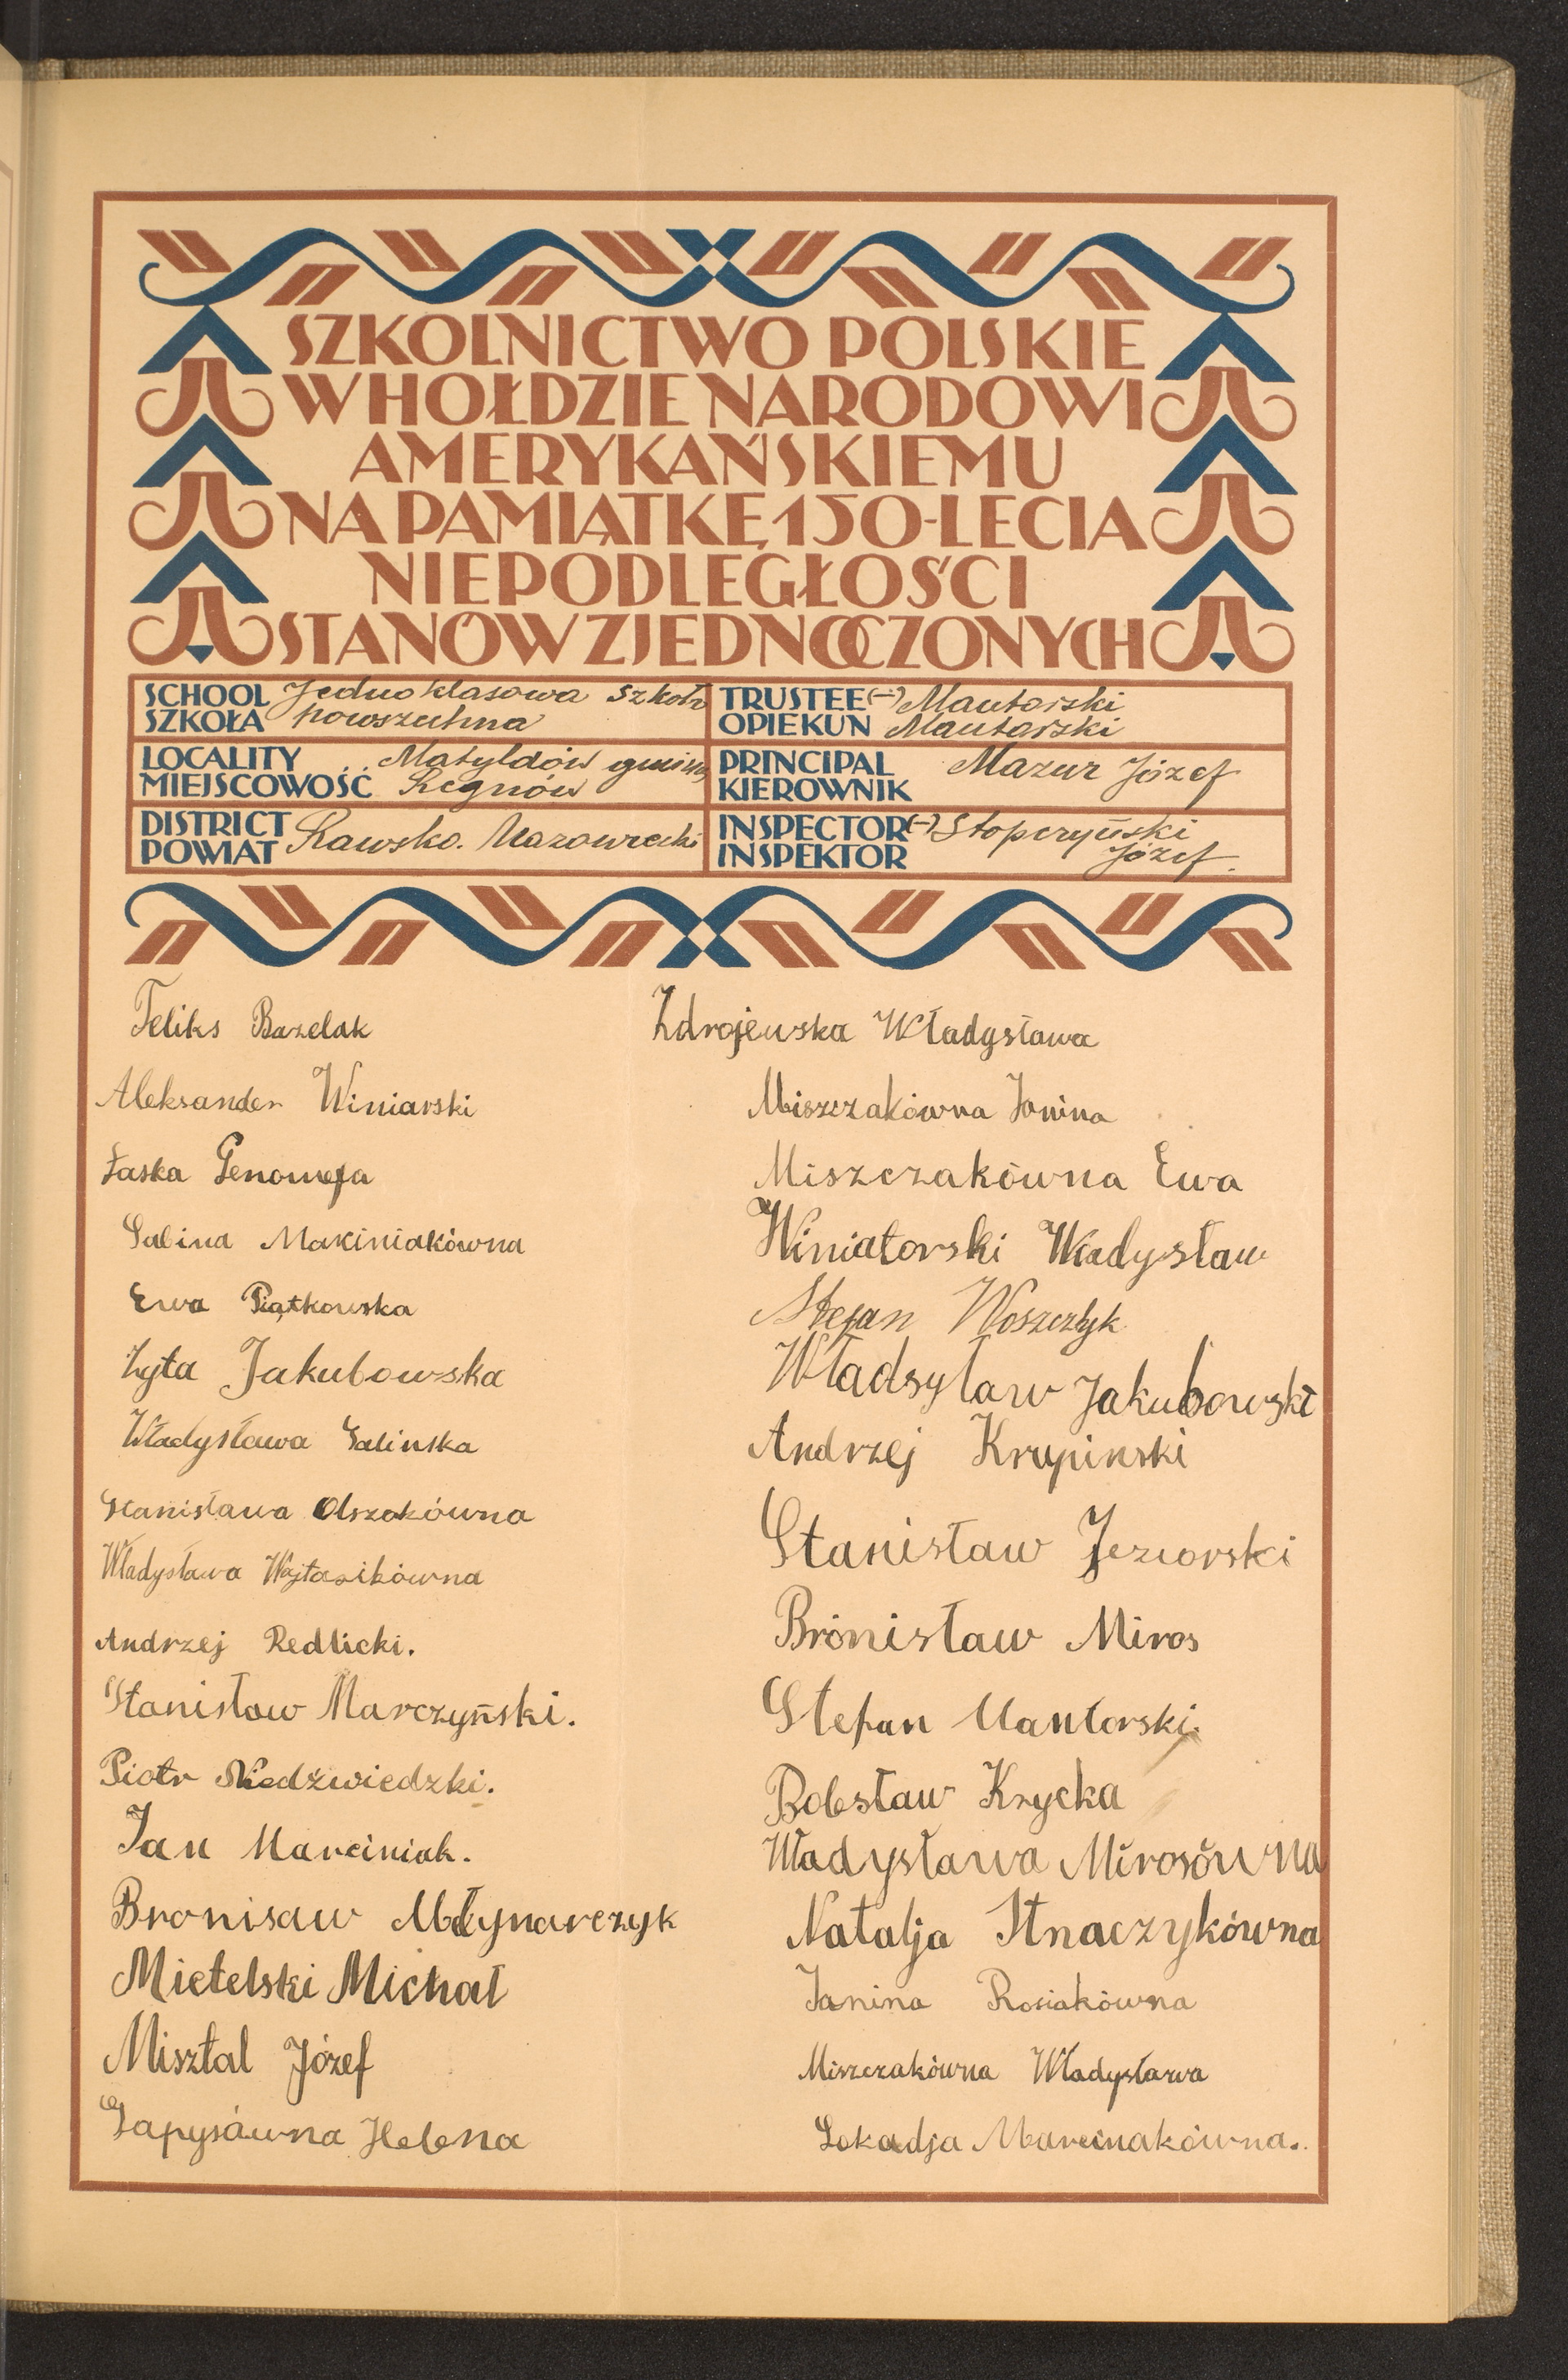 SZKOLNICTWO POLSKIE
W HOŁDZIE NARODOWI
AMERYKAŃSKIEMU
NA PAMIĄTKĘ 150-LECIA
NIEPODLEGŁOŚCI
STANÓW ZJEDNOCZONYCH
SCHOOL Jednoklasowa Szkoła
SZKOŁA powszechna
TRUSTEE (-) Mantorski
OPIEKUN Mantorski
LOCALITY Matyldów gmina
MIEJSCOWOŚĆ Regnów
PRINCIPAL Mazur Józef
KIEROWNIK
DISTRICT Rawsko. Mazowiecki
POWIAT
INSPECTOR (-) Stopczyński
INSPEKTOR Józef.
Feliks Bazelak
Aleksander Winiarski
Łaska Genowefa
Galina Makiniakówna
Ewa Piątkowska
Zyta Jakubowska
Władysława Galinska
Stanisława Olszakówna
Władysława Wojtasikówna
Andrzej Redlicki.
Stanisław Marczyński.
Piotr Niedźwiedzki.
Jan Marciniak.
Bronisaw Młynarczyk
Mietelski Michał
Misztal Józef
Gapysówna Helena
Zdrojewska Władysława
Miszczakówna Janina
Miszczakówna Ewa
Winiatorski Władysław
Stefan Woszczyk
Władsyław Jakubowski
Andrzej Krupinski
Stanisław Jeziorski
Bronisław Miros
Stefan Mantorski.
Bolesław Krycka
Władysława Mirosówna
Natalja Stnaczykówna
Janina Rosiakówna
Miszczakówna Władysława
Lokadja Marcinakówna.